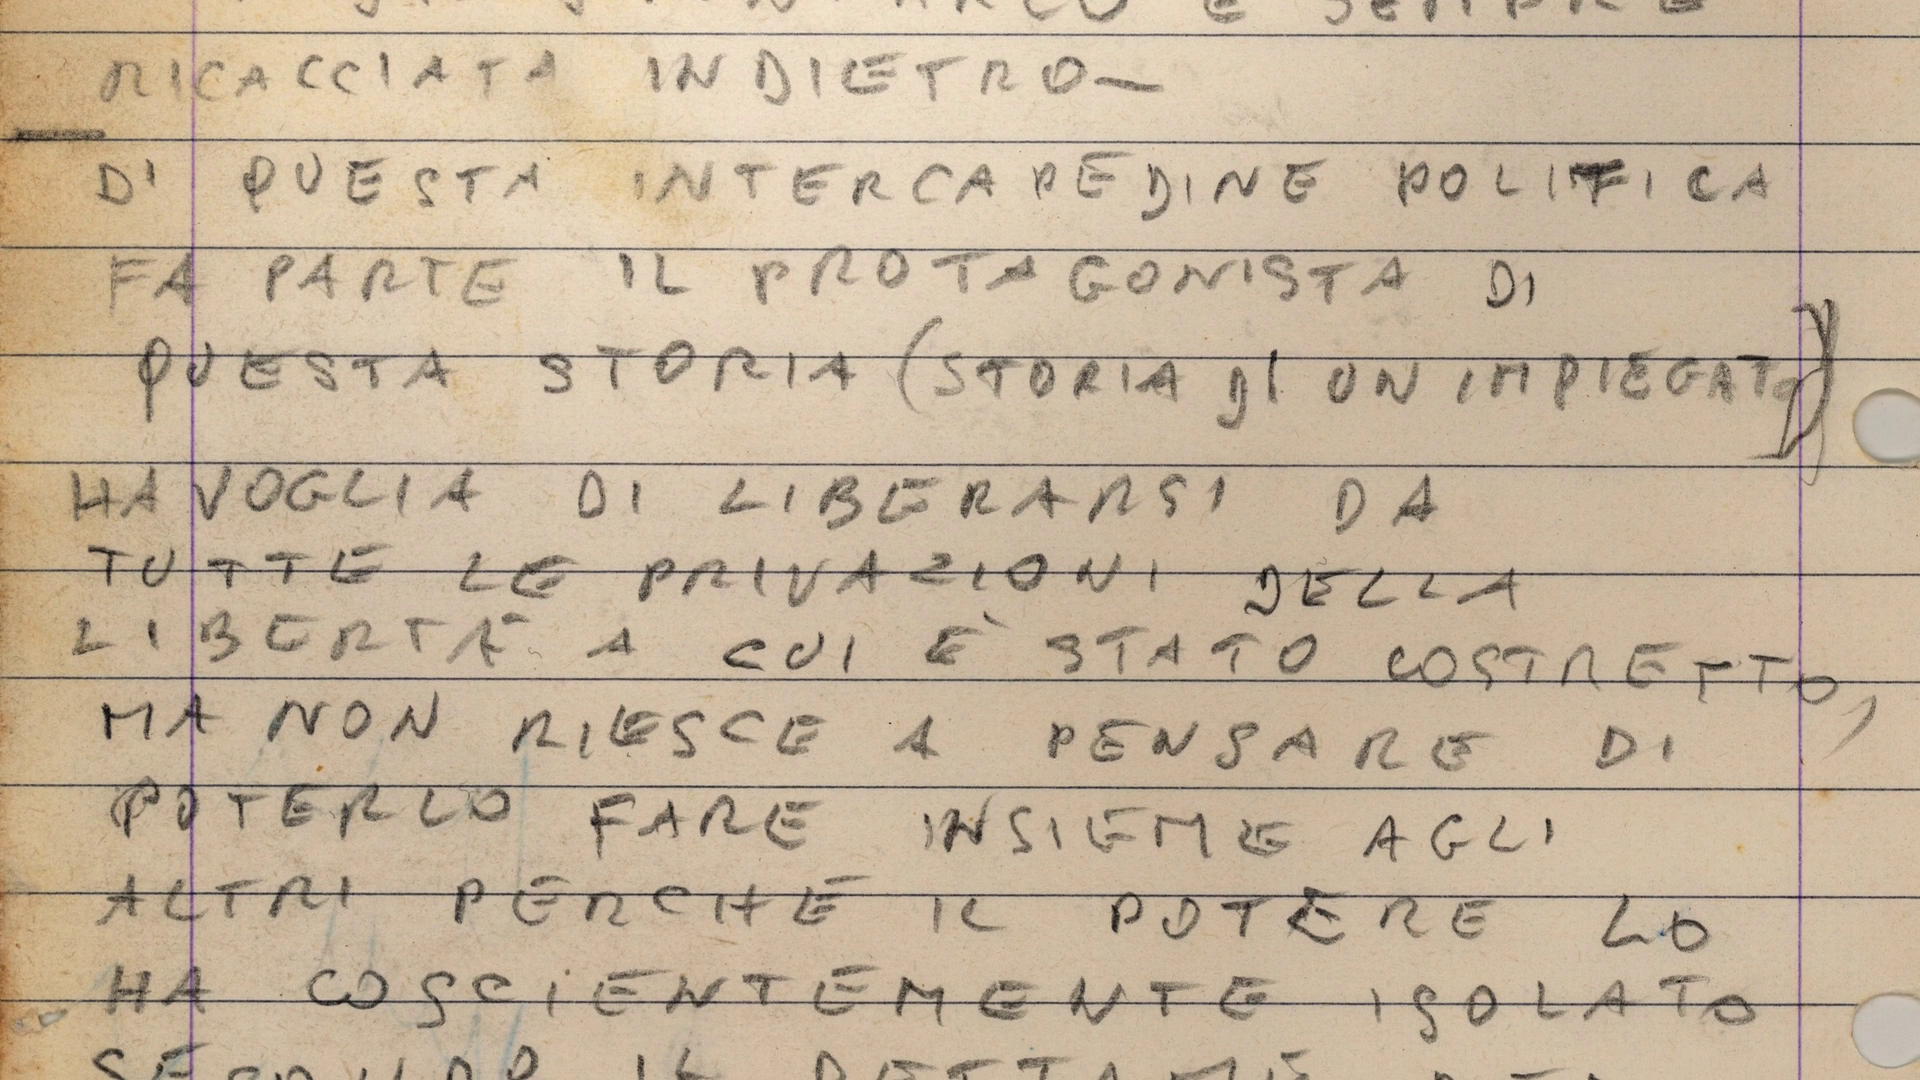 È SEMPRE
RICACCIATA INDIETRO—
DI QUESTA INTERCAPEDINE POLITICA
FA PARTE IL PROTAGONISTA DI
QUESTA STORIA (STORIA DI UN IMPIEGATO)
HA VOGLIA DI LIBERARSI DA
TUTTE LE PRIVAZIONI DELLA
LIBERTÀ A CUI È STATO COSTRETTO,
MA NON RIESCE A PENSARE DI
POTERLO FARE INSIEME AGLI
ALTRI PERCHÉ IL POTERE LO
HA COSCIENTEMENTE ISOLATO
SECONDO IL DETTAME